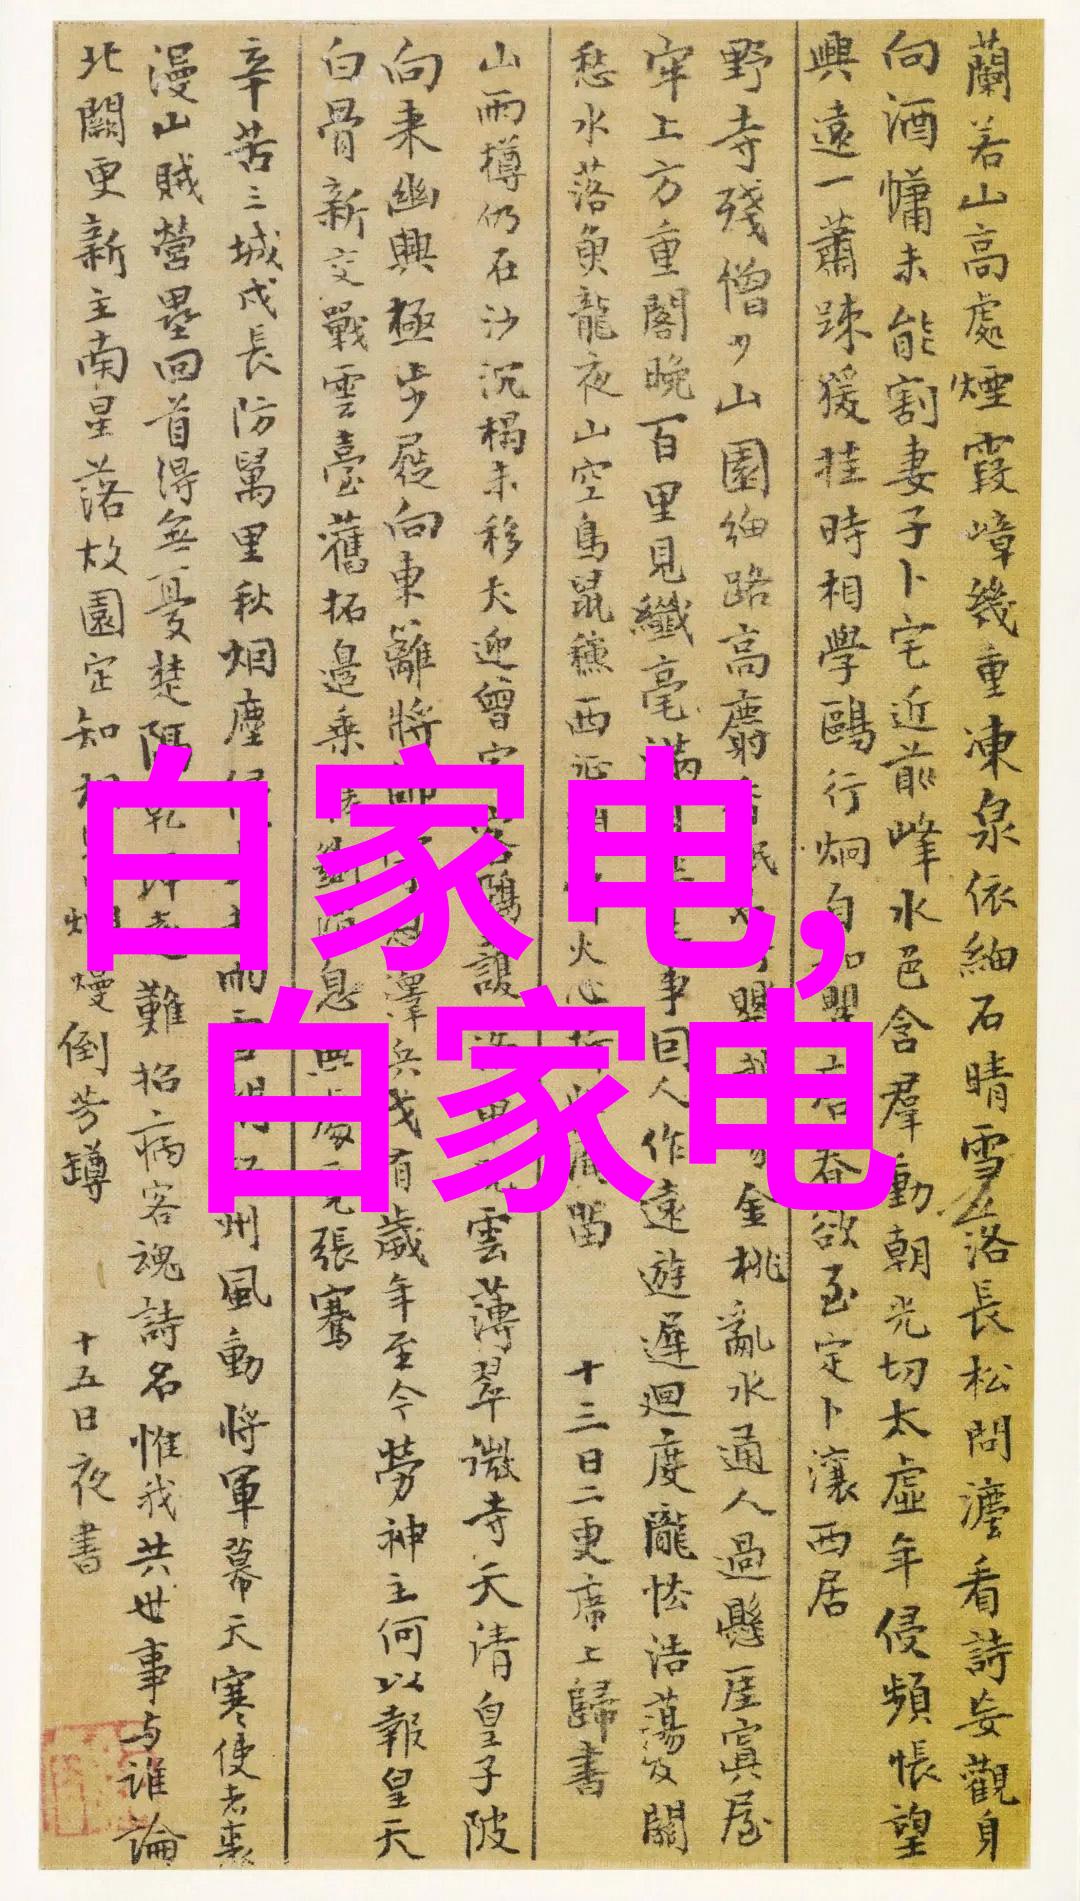 蘭若山高處煙霞嶂幾重凍泉依細石晴雪落長松問灋看詩妄觀身
向酒慵未能割妻子卜宅近前峰水色含羣動朝光切太虛年侵頻悵望
興遠一蕭踈猨挂時相學鷗行炯自如瞿唐春欲至定卜瀼西居
野寺殘僧少山園細路高麝香眠金桃亂水通人過懸崖寘屋
牢上方重閣晚百里見纖毫滿事回人作遠遊遲迴度隴怯浩蕩及關
愁水落魚龍夜山空鳥鼠穐西征火心折此淹留 十三日二更席上歸書
山雨樽仍在沙沉榻未移犬迎曾宿客鴉護雲薄翠微寺天清皇子陂
向來幽興極步屣向東籬將帥恩澤兵戈有歲年至今勞神主何以報皇天
白骨新交戰雲臺舊拓邊乘斷消息無處覓張騫
辛苦三城戍長防萬里秋烟塵侵雨雪州風動將軍幕天寒使者裘
漫山賊營壘回首得無憂楚隔乾難招病客魂詩名惟我共世事与誰論
北闕更新主南星落故園定知相見爛熳倒芳罇 十五日夜書
白家电,
白家电